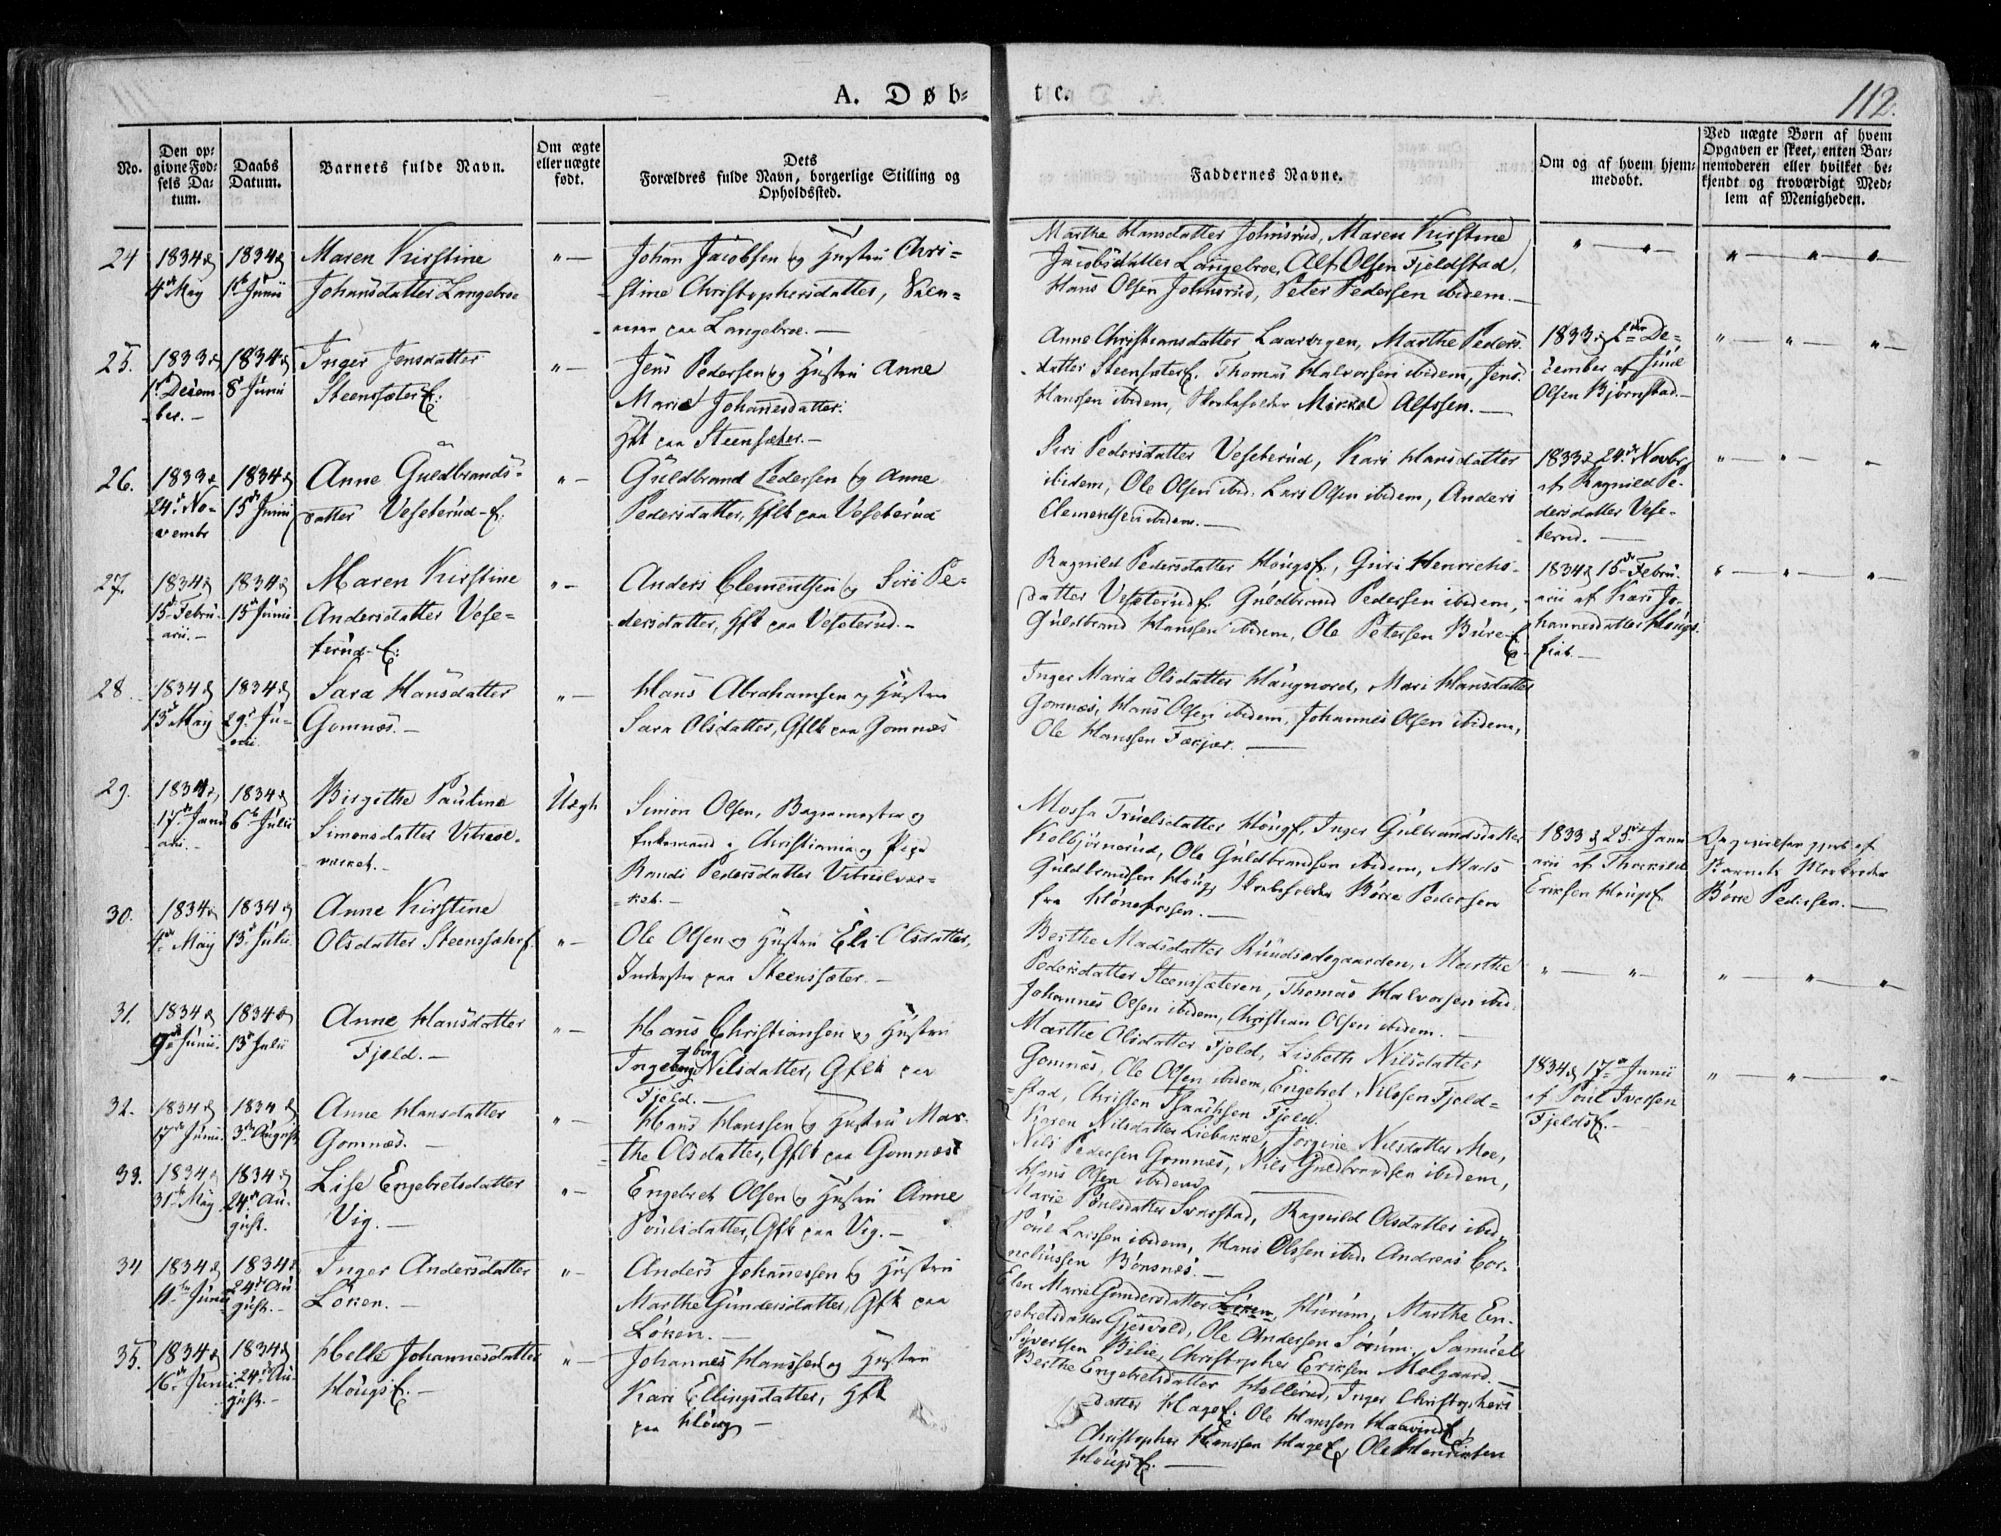 A. Døb=
te.
112.
No.
Den op=
givne Fød=
sels Da=
tum.
Daabs
Datum.
Barnets fulde Navn.
Om ægte
eller uægte
født.
Dets
Forældres fulde Navn, borgerlige Stilling og
Opholdssted.
Faddernes Navne.
Om og af hvem hjem=
medøbt.
Ved uægte Børn af hvem
Opgaven er skeet, enten Bar=
nemoderen eller hvilket be=
kjendt og troværdigt Med=
lem af Menigheden.
24
1834
4de May
1834
1ste Junii
Maren Kirstine
Johansdatter Langebroe
"—
Johan Jacobsen og Hustru Chri=
stine Christophersdatter,
paa Langebroe.—
Marthe Hansdatter Johnsrud, Maren Kirstine
Jacobsdatter Langebroe, Alf Olsen Fjeldstad,
Hans Olsen Johnsrud, Peter Pedersen ibidem.—
25.
1833
1ste Decem=
ber.—
1834
8de Junii
Inger Jensdatter
Steensæter E:
"—
Jens Pedersen og Hustru Anne
Marie Johannesdatter.
Hfk paa Steensæter.—
Anne Christiansdatter Laarvigen, Marthe Peders=
datter Steensæter E. Thomas Halvorsen ibidem, Jens
Hanssen ibidem, Skoleholder Mikkel Alfssen.—
1833 De=
cember af Juul
Olsen Bjørnstad.—
26.
1833
24de No=
vembr
1834
15de Junii
Anne Guldbrands=
datter Veseterud-E.
"—
Guldbrand Pedersen og Anne
Pedersdatter, Gflk paa Veseterud
Siri Pedersdatter Veseterud, Kari Hansdatter
ibidem, Ole Olsen ibid. Lars Olsen ibidem, Anders
Clementsen ibidem.—
1833 24de Novbr
af Ragnild Pe=
dersdatter Vese=
terud.—
27.
1834
15de Febru=
arii.—
1834
15de Junii
Maren Kirstine
Andersdatter Vese=
terud-E:
"—
Anders Clementsen og Siri Pe=
dersdatter, Hflk paa Veseterud.—
Ragnild Pedersdatter Hougs E., Guri Henrichs=
datter Veseterud E. Guldbrand Pedersen ibidem,
Guldbrand Hanssen ibidem, Ole Petersen Bure E
1834 15de Febru=
arii af Kari Jo=
hannesdatter Hougs=
eiet.—
28.
1834
13de May
1834
29de Ju=
nii.
Sara Hansdatter
Gomnæs.—
"—
Hans Abrahamsen og Hustru
Sara Olsdatter, Gflk paa Gomnæs
Inger Maria Olsdatter Haugnord, Mari Hansdatter
Gomnæs, Hans Olsen ibidem, Johannes Olsen ibidem,
Ole Hanssen Færjar.—
29.
1834
17de Janu
arii.—
1834
6te Julii
Birgithe Pauline
Simonsdatter Vitriol=
værket.—
Uægte
Simon Olsen, Bagermester og
Enkemand i Christiania og Pige
Randi Pedersdatter Vitriolvær=
ket.—
Mossa Truelsdatter Houg E, Inger Gulbrandsdatter
Kolbjørnsrud, Ole Guldbrandsen ibidem, Mads
Guldbrandsen Houg, Skoleholder Børre Pedersen
fra Hønefossen.—
1833 25de Janu
arii af Thorkild
Eriksen Hougs E.
Børre Pedersen.—
30.
1834
4de May
1834
13de Julii
Anne Kirstine
Olsdatter Steensæter E.
"—
Ole Olsen og Hustru Eli Olsdatter,
Inderster paa Steensæter.—
Berthe Madsdatter Rundsødegaarden, Marthe
Pedersdatter Steensæteren, Thomas Halvorsen ibid.
Johannes Olsen ibidem, Christian Olsen ibidem.
31.
1834
9de Junii.
1834
13de Julii
Anne Hansdatter
Fjeld.—
"—
Hans Christiansen og Hustru
Ingeborg Nilsdatter, Gflk paa
Fjeld.—
Marthe Olsdatter Fjeld, Lisbeth Nilsdatter
Gomnæs, Ole Olsen ibidem, Engebret Nilssen Fjeld=
stad, Christen Isaachsen Fjeld.
1834 17de Junii
af Poul Iversen
Fjelds E.—
32.
1834
17de Junii.
1834
3de August
Anne Hansdatter
Gomnæs.—
"—
Hans Hanssen og Hustru Mar=
the Olsdatter, Gflk paa Gomnæs
Karen Nilsdatter Liebakke, Jorgine Nilsdatter Moe,
Nils Pedersen Gomnæs, Nils Guldbrandsen ibidem,
Hans Olsen ibidem,
33.
1834
31te May.
1834
24de Au=
gust.
Lise Engebretsdatter
Vig.—
"—
Engebret Olsen og Hustru Anne
Poulsdatter, Gflk paa Vig.—
Marie Poulsdatter Svarstad, Ragnild Olsdatter ibid.
Poul Larssen ibidem, Hans Olssen ibid. Andreas Cor=
neliussen Bønsnæs.—
34
1834
11te Junii
1834
24de Au
gust.—
Inger Andersdatter
Løken.—
"—
Anders Johannessen og Hustru
Marthe Gundersdatter, Gflk paa
Løken.—
Elen Marie Gundersdatter Løken, Hurum, Marthe En=
gebretsdatter Gjesvold, Ole Andersen Sørum, Samuel
Syvertsen Bilie, Christopher Eriksen Mølgaard.—
35.
1834
16de Junii.
1834
24de Au=
gust.—
Helle Johannesdatter
Hougs E.—
"—
Johannes Hanssen og Hustru
Kari Ellingsdatter, Hflk
paa Houg—
Berthe Engebretsdatter Hollerud, Inger Christophers=
datter Hage E. Ole Hanssen Haavind E,
Christopher Hanssen Hage E, Ole Henriksen
Hougs E.—